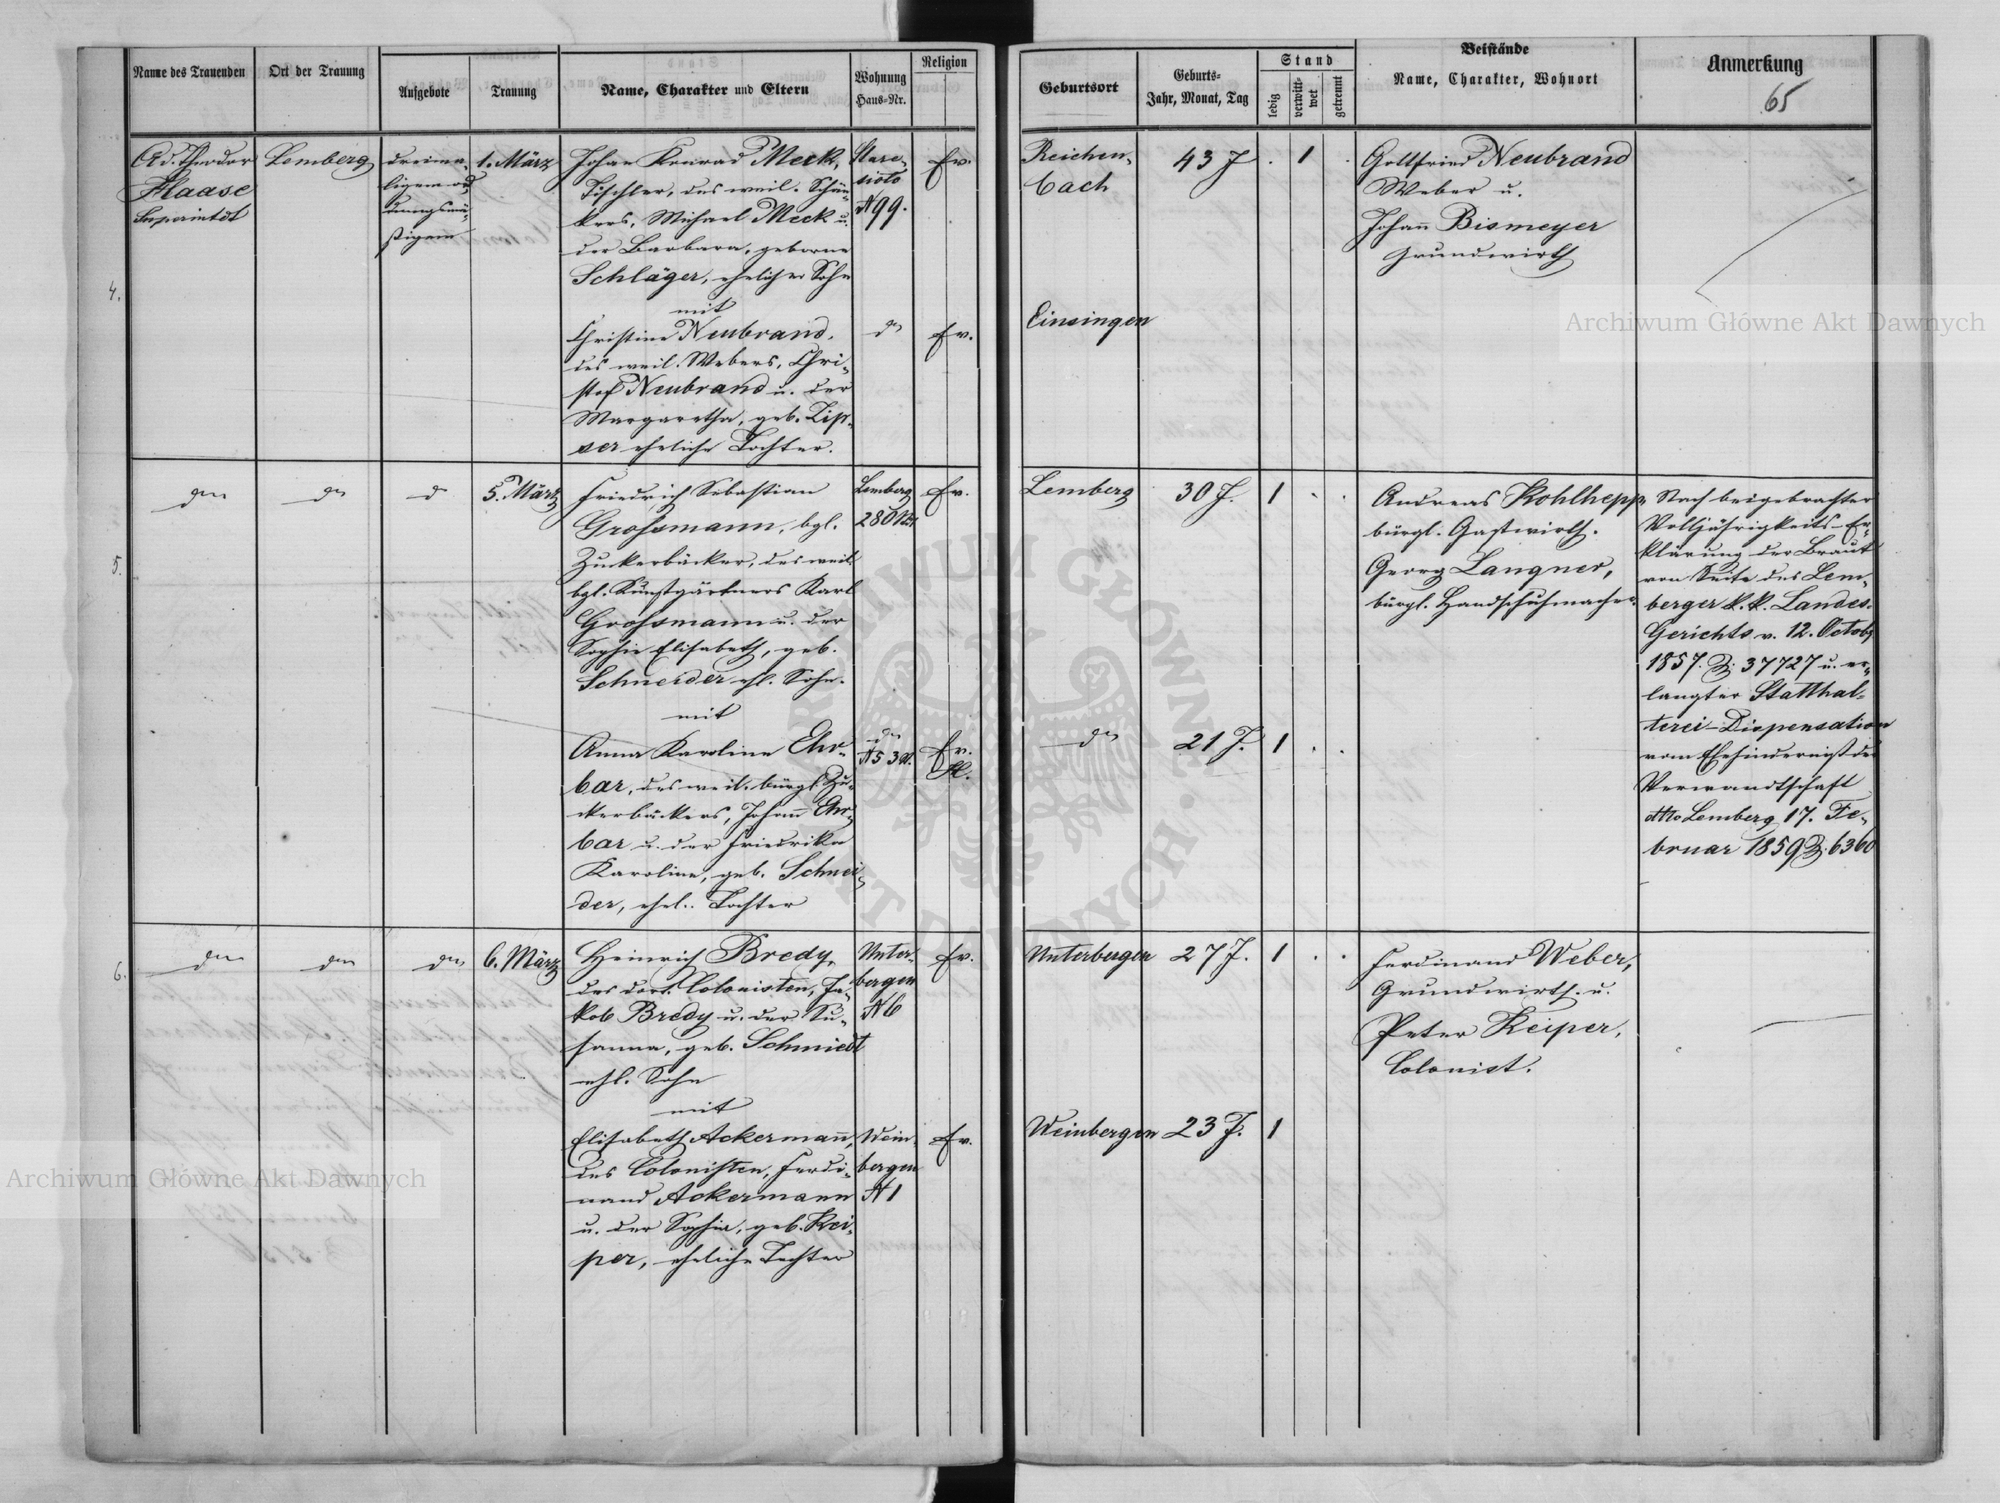 Name des Trauenden
Ort der Trauung
Aufgebote
Trauung
Name, Charakter und Eltern
Wohnung
Haus-Nr.
Religion
Geburtsort
Geburts-
Jahr, Monat, Tag
Stand
ledig
verwitt-
wet
getrennt
Beistände
Name, Charakter, Wohnort
Anmerkung
65
4.
Ad. Theodor
Haase
Superintdt
Lemberg
dreima-
ligem
1. März
Johan Konrad Meck,
Tischler, des weil. Schän-
kers, Michael Meck u.
der Barbara, geborne
Schläger, ehelicher Sohn
mit
Christine Neubrand,
des weil. Webers, Chri-
stof Neubrand u. der
Margaretha, geb. Zip-
ser eheliche Tochter.
Stare-
sioło
N 99.
do
Ev.
Ev.
Reichen-
bach
Einsingen
43 J
. 1 .
Gottfried Neubrand
Weber u.
Johann Bismeyer
Grundwirth
5.
do
do
do
5. März
Friedrich Sebastian
Grossmann, bgl.
Zuckerbäcker, des weil.
bgl. Kunstgärtners Karl
Grossmann u. der
Sophie Elisabeth, geb.
Schneider ehl. Sohn.
mit
Anna Karoline Ehr-
bar, des weil. bürgl. Zu-
ckerbäckers, Johann Ehr-
bar u. der Friedrika
Karoline, geb. Schnei-
der, ehel. Tochter
Lemberg
do
Ev.
Ev.
H.
Lemberg
do
30 J.
21 J.
1 . .
1 . .
Andreas Kohlhepp,
bürgl. Gastwirth.
Georg Langner,
bürgl. Handschuhmacher.
Nach beigebrachter
Volljährigkeits-Er-
klärung der Braut
von Seite des Lem-
berger k. k. Landes-
Gerichts v. 12. Octob
1857. Z. 37727 u. er-
langter Statthal-
terei-Dispensation
vom Ehehinderniß der
Verwandtschaft
dtto Lemberg 17. Fe-
bruar 1859 Z. 6360
6.
do
do
do
6. März
Heinrich Bredy,
des dort. Colonisten, Ja-
kob Bredy u. der Su-
sanna, geb. Schmiedt
ehl. Sohn
mit
Elisabeth Ackermann,
des Colonisten, Ferdi-
nand Ackermann
u. der Sophia, geb. Kei-
per, eheliche Tochter
Unter-
bergen
N 6
Wein-
bergen
N 1
Ev.
Ev.
Unterbergen
Weinbergen
27 J.
23 J.
1 . .
1
Ferdinand Weber,
Grundwirth u.
Peter Keiper,
Colonist.
Archiwum Główne Akt Dawnych
Archiwum Główne Akt Dawnych
ARCHIWUM GŁÓWNE AKT DAWNYCH